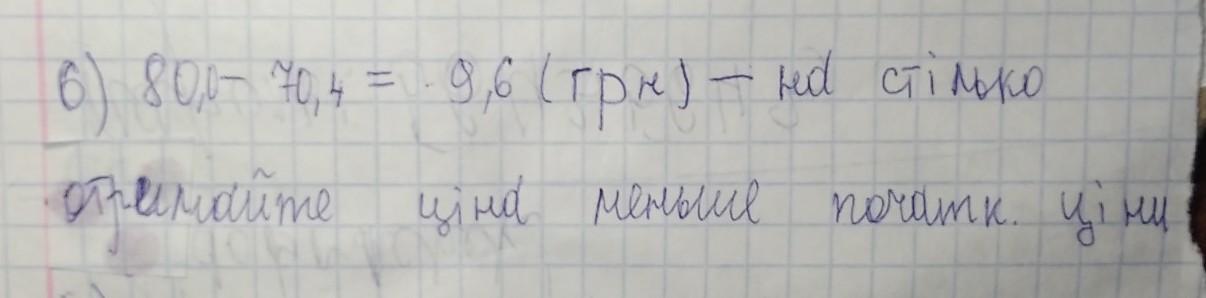 6) 80,0 - 70,4 = 9,6 (грн) - на стілько
отримайте ціна меньше початк. ціни